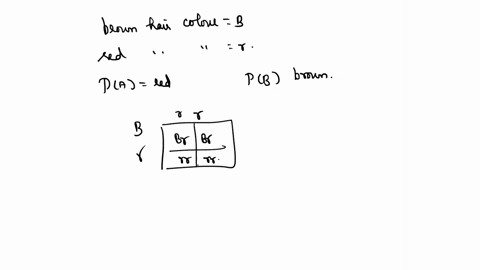 brown hair colour = B
red " " = r.
P(A) = red P(B) brown.
r r
B Br Br
r rr rr.